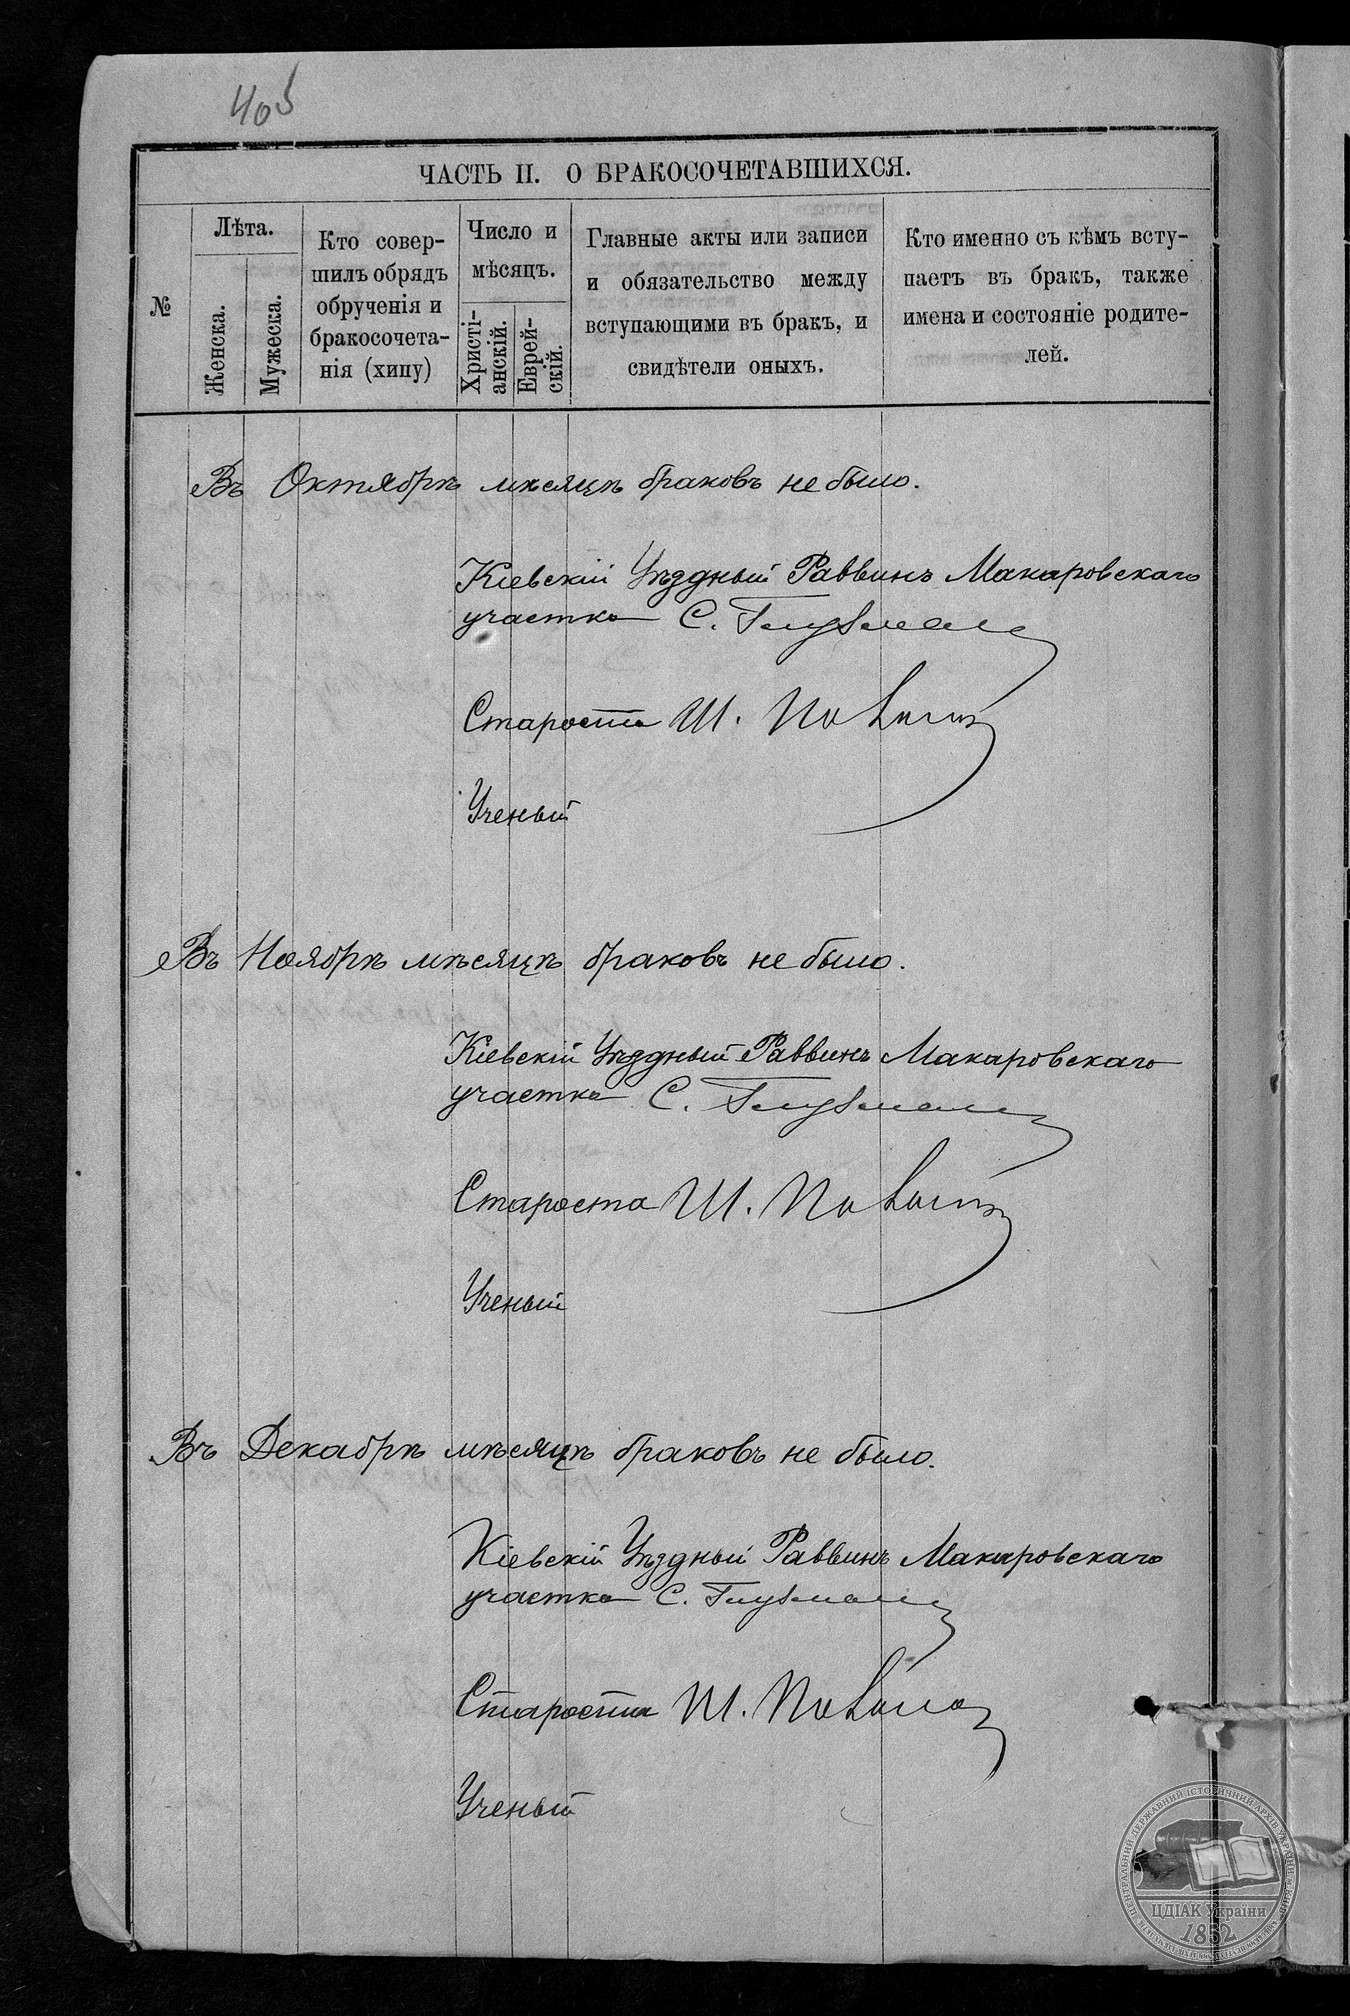 405
ЧАСТЬ II. О БРАКОСОЧЕТАВШИХСЯ.
№
Лѣта.
Женска.
Мужеска.
Кто совер-
шилъ обрядъ
обрученія и
бракосочета-
нія (хипу)
Число и
мѣсяцъ.
Христі-
анскій.
Еврей-
скій.
Главные акты или записи
и обязательство между
вступающими въ бракъ, и
свидѣтели оныхъ.
Кто именно съ кѣмъ всту-
паетъ въ бракъ, также
имена и состояніе родите-
лей.
Въ Октябрѣ мѣсяцѣ браковъ не было.
Кіевскій Уѣздный Раввинъ Макаровскаго
участка С. Глузманъ
Староста Ш.
Ученый
Въ Ноябрѣ мѣсяцѣ браковъ не было.
Кіевскій Уѣздный Раввинъ Макаровскаго
участка С. Глузманъ
Староста Ш.
Ученый
Въ Декабрѣ мѣсяцѣ браковъ не было.
Кіевскій Уѣздный Раввинъ Макаровскаго
участка С. Глузманъ
Староста Ш.
Ученый
ЦЕНТРАЛЬНИЙ ДЕРЖАВНИЙ ІСТОРИЧНИЙ АРХІВ УКРАЇНИ, М. КИЇВ
ЦДІАК України
1852